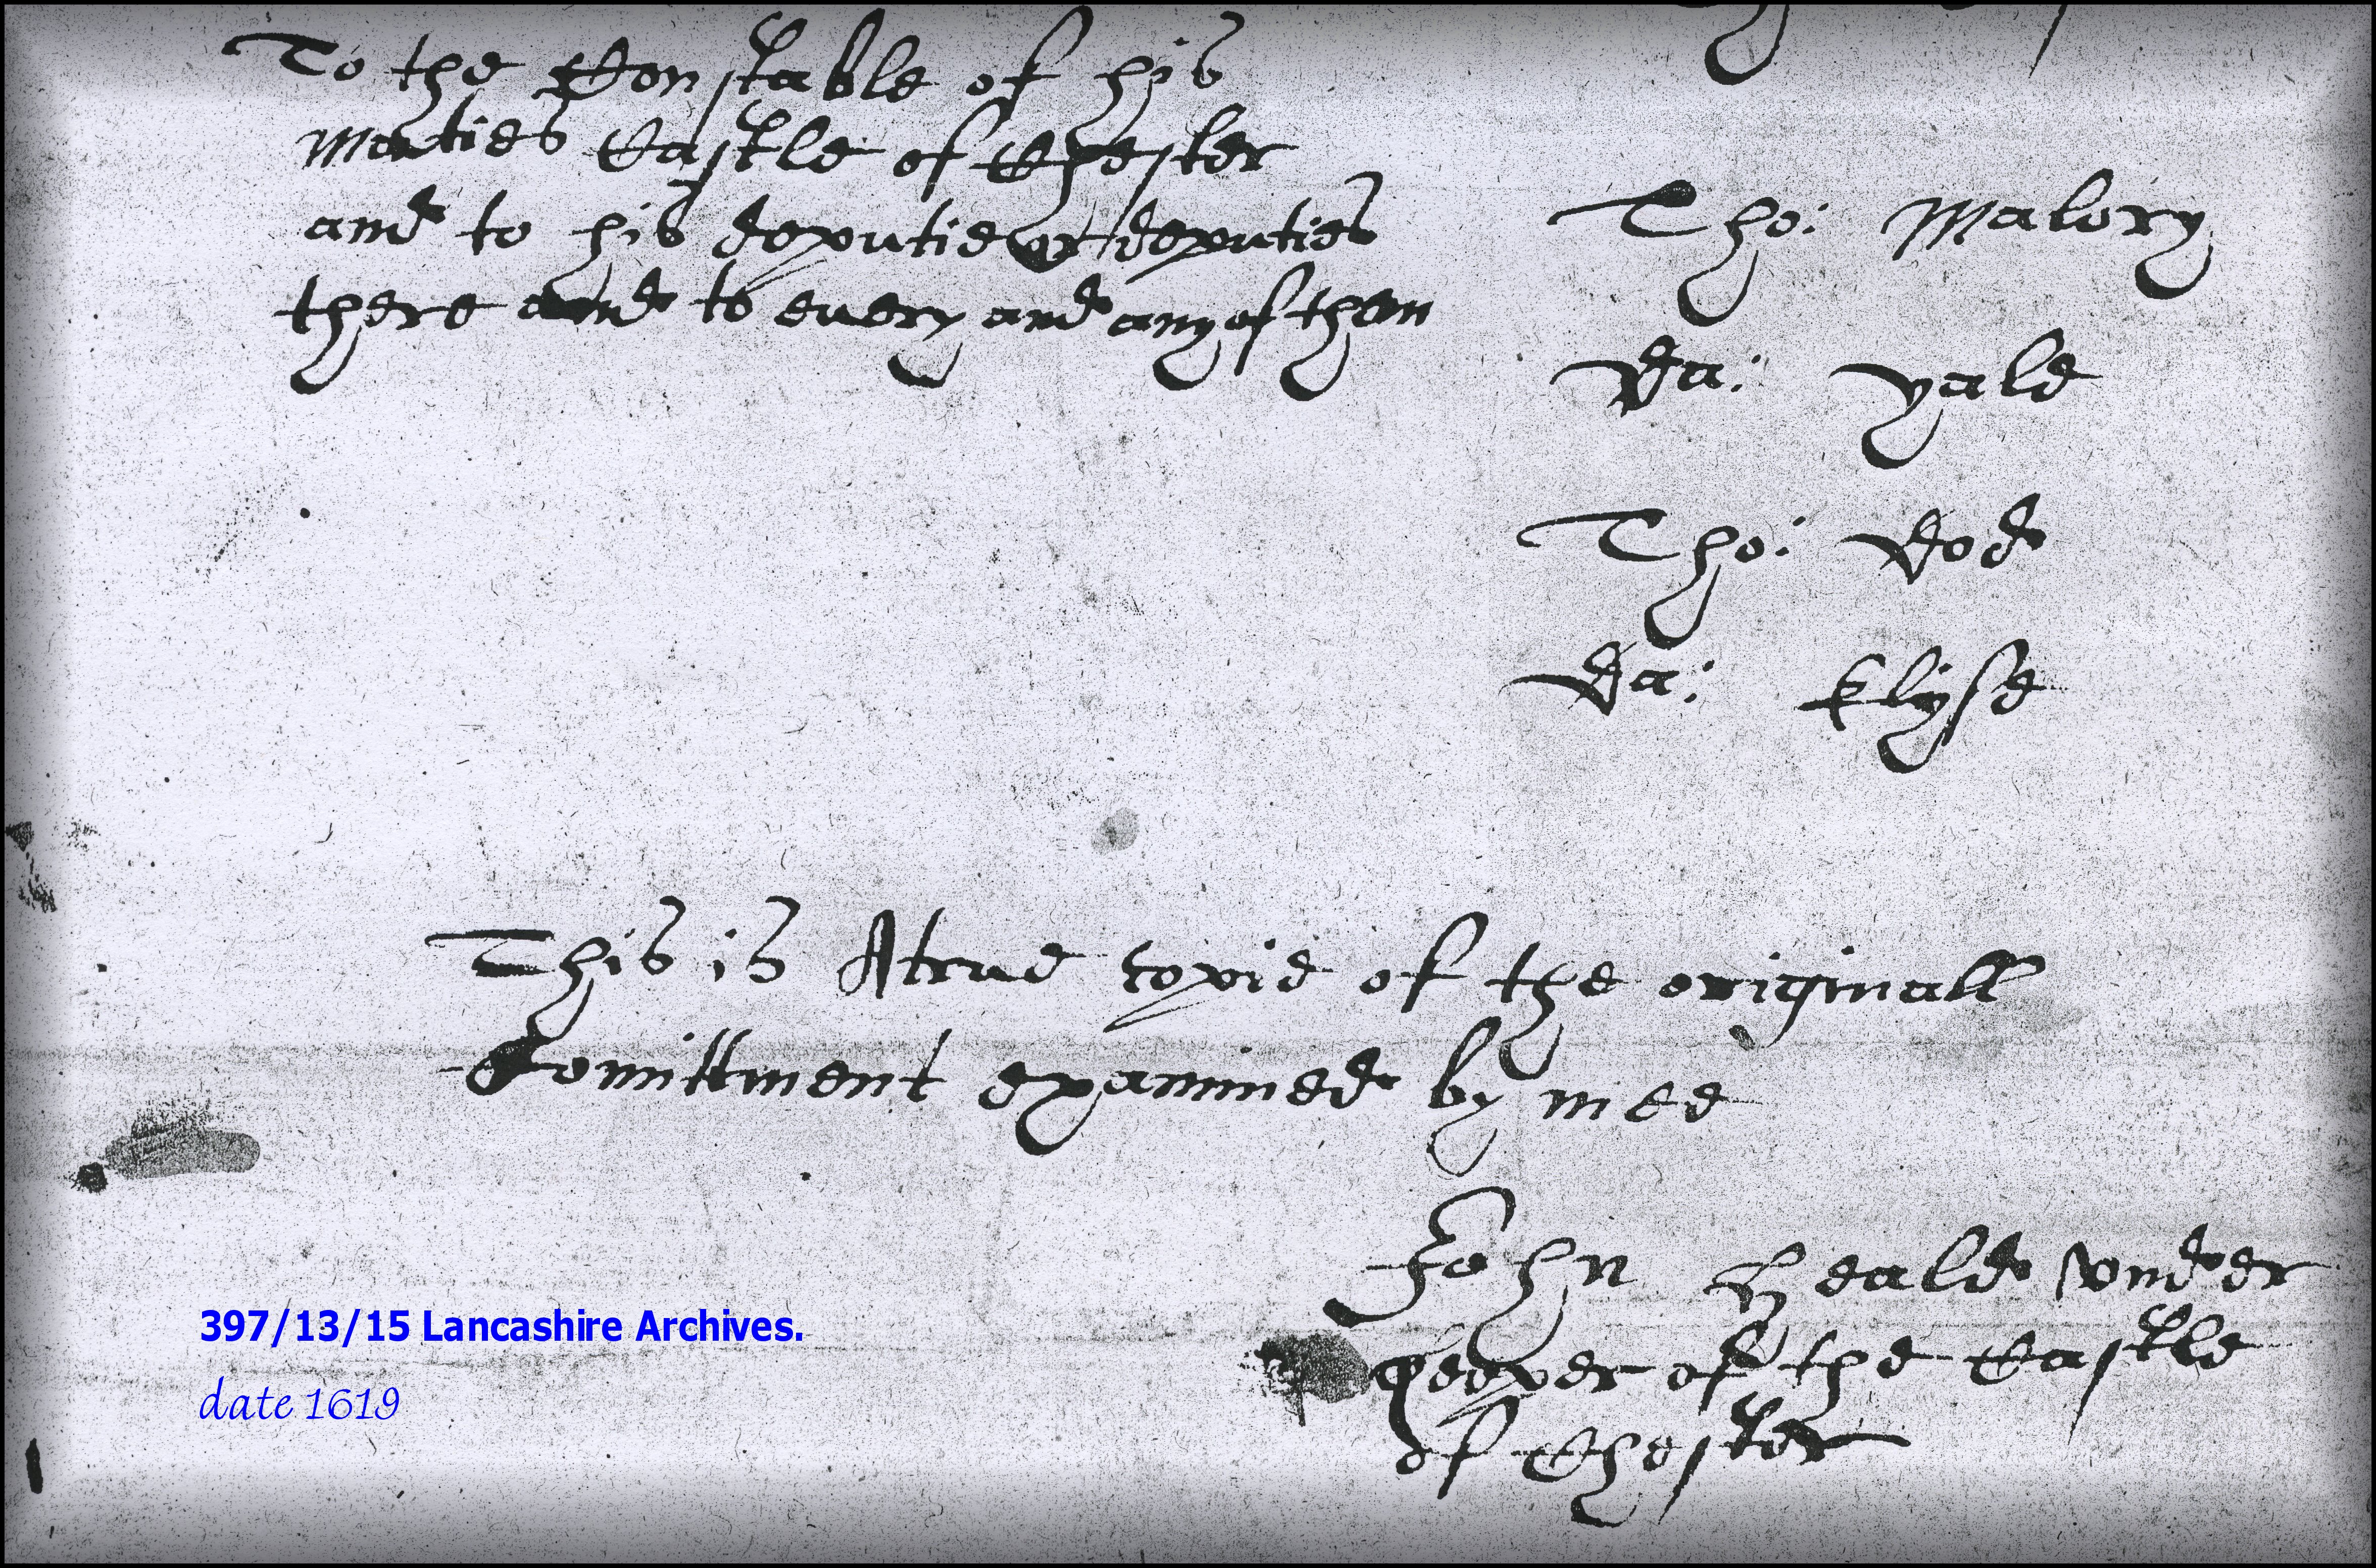 To the Constable of his
Maties Castle of Chester
and to his deputie or deputies
there and to every and any of them
Tho: Malory
Da: yale
Tho: Dod
Da: klyse
This is A true copie of the originall
Comittment examined by mee
John Heald vnder
keeper of the Castle
of Chester
397/13/15 Lancashire Archives.
date 1619